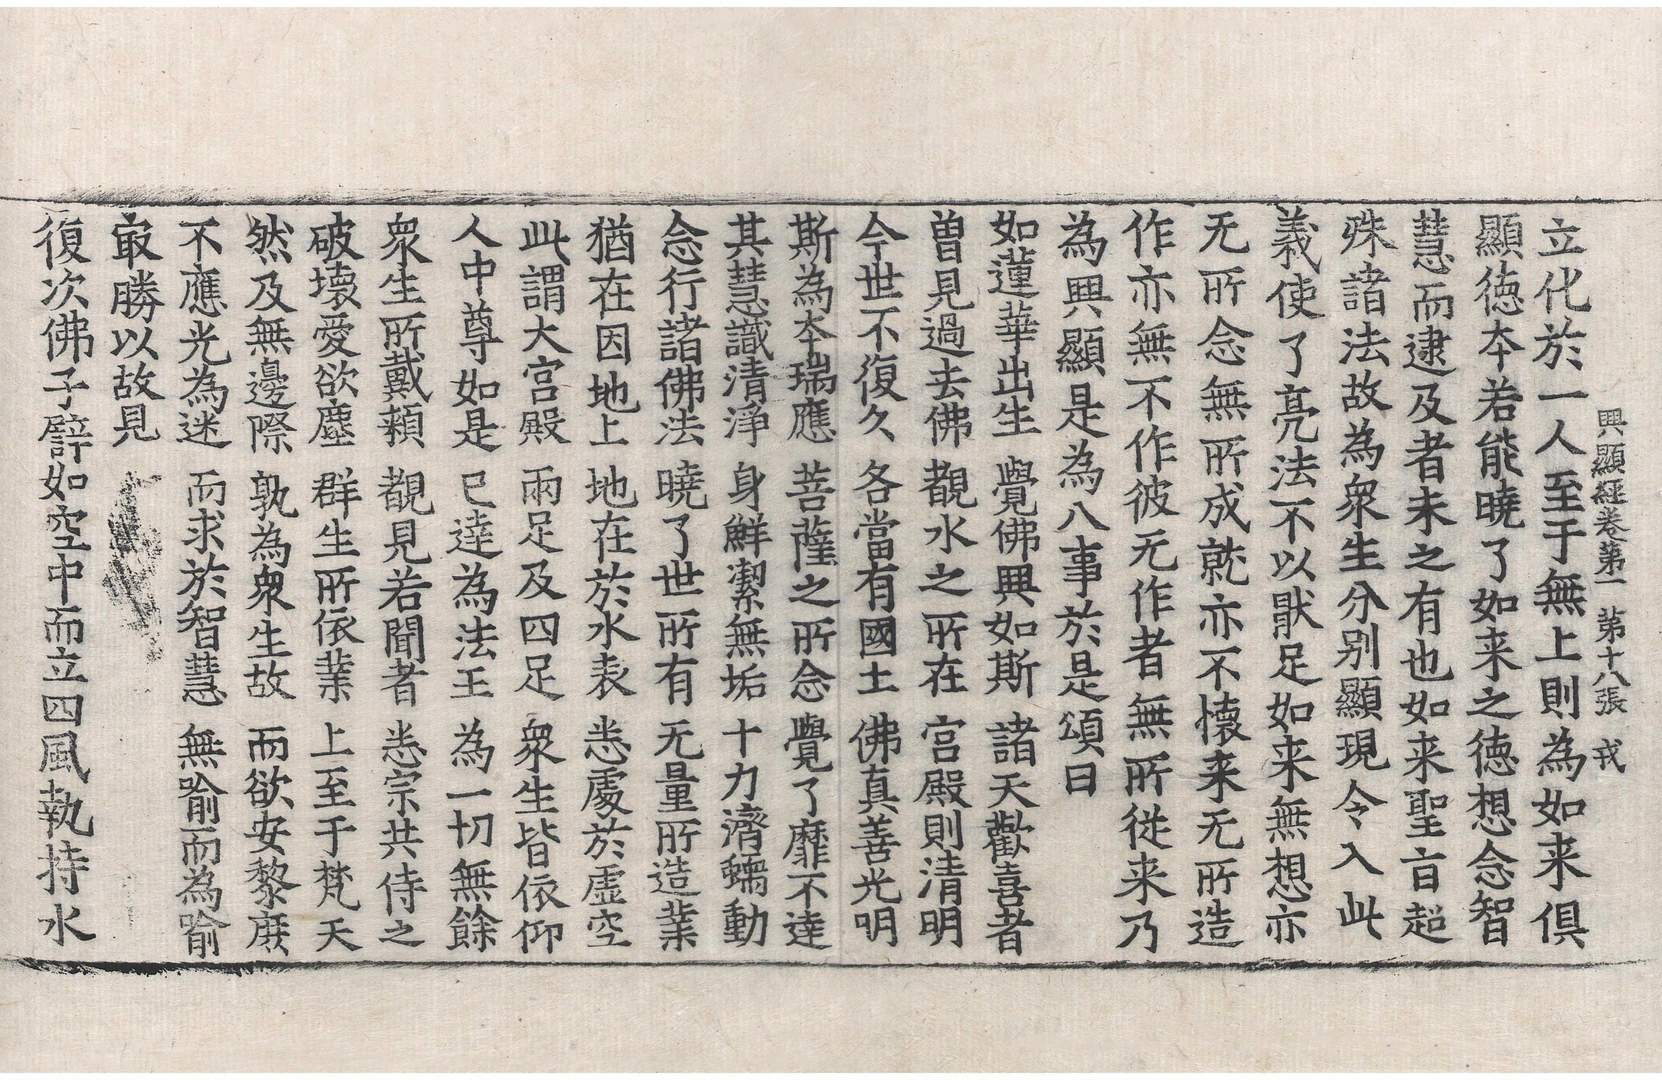 興顯經卷第一　第十八張　戎
立化於一人至于無上則為如来俱
顯徳夲若能曉了如来之徳想念智
慧而逮及者未之有也如来聖旨超
殊諸法故為衆生分别顯現令入此
義使了亮法不以猒足如来無想亦
无所念無所成就亦不懐来无所造
作亦無不作彼无作者無所從来乃
為興顯是為八事於是頌曰
如蓮華出生　覺佛興如斯　諸天歡喜者
曽見過去佛　覩水之所在　宫殿則清明
今世不復久　各當有國土　佛真善光明
斯為夲瑞應　菩薩之所念　覺了靡不達
其慧識清淨　身鮮潔無垢　十力濟蠕動
念行諸佛法　曉了世所有　无量所造業
猶在因地上　地在於水表　悉處於虚空
此謂大宫殿　兩足及四足　衆生皆依仰
人中尊如是　已逹為法王　為一切無餘
衆生所戴頼　覩見若聞者　悉宗共侍之
破壊愛欲塵　群生所依業　上至于梵天
然及無邊際　孰為衆生故　而欲安黎庻
不應光為迷　而求於智慧　無喻而為喻
㝡勝以故見
復次佛子譬如空中而立四風執持水